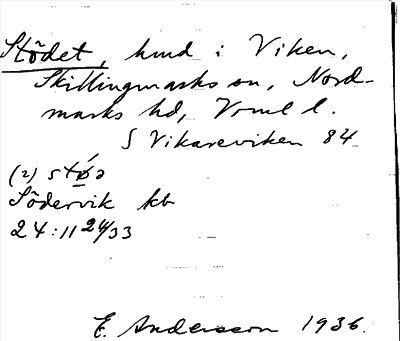 Stödet, hmd i Viken,
Skillingmarks sn, Nord-
marks hd, Vrml l.
S Vikareviken 84
(2) stǿə
Södervik kb
24:11 24/33
E. Andersson 1936.